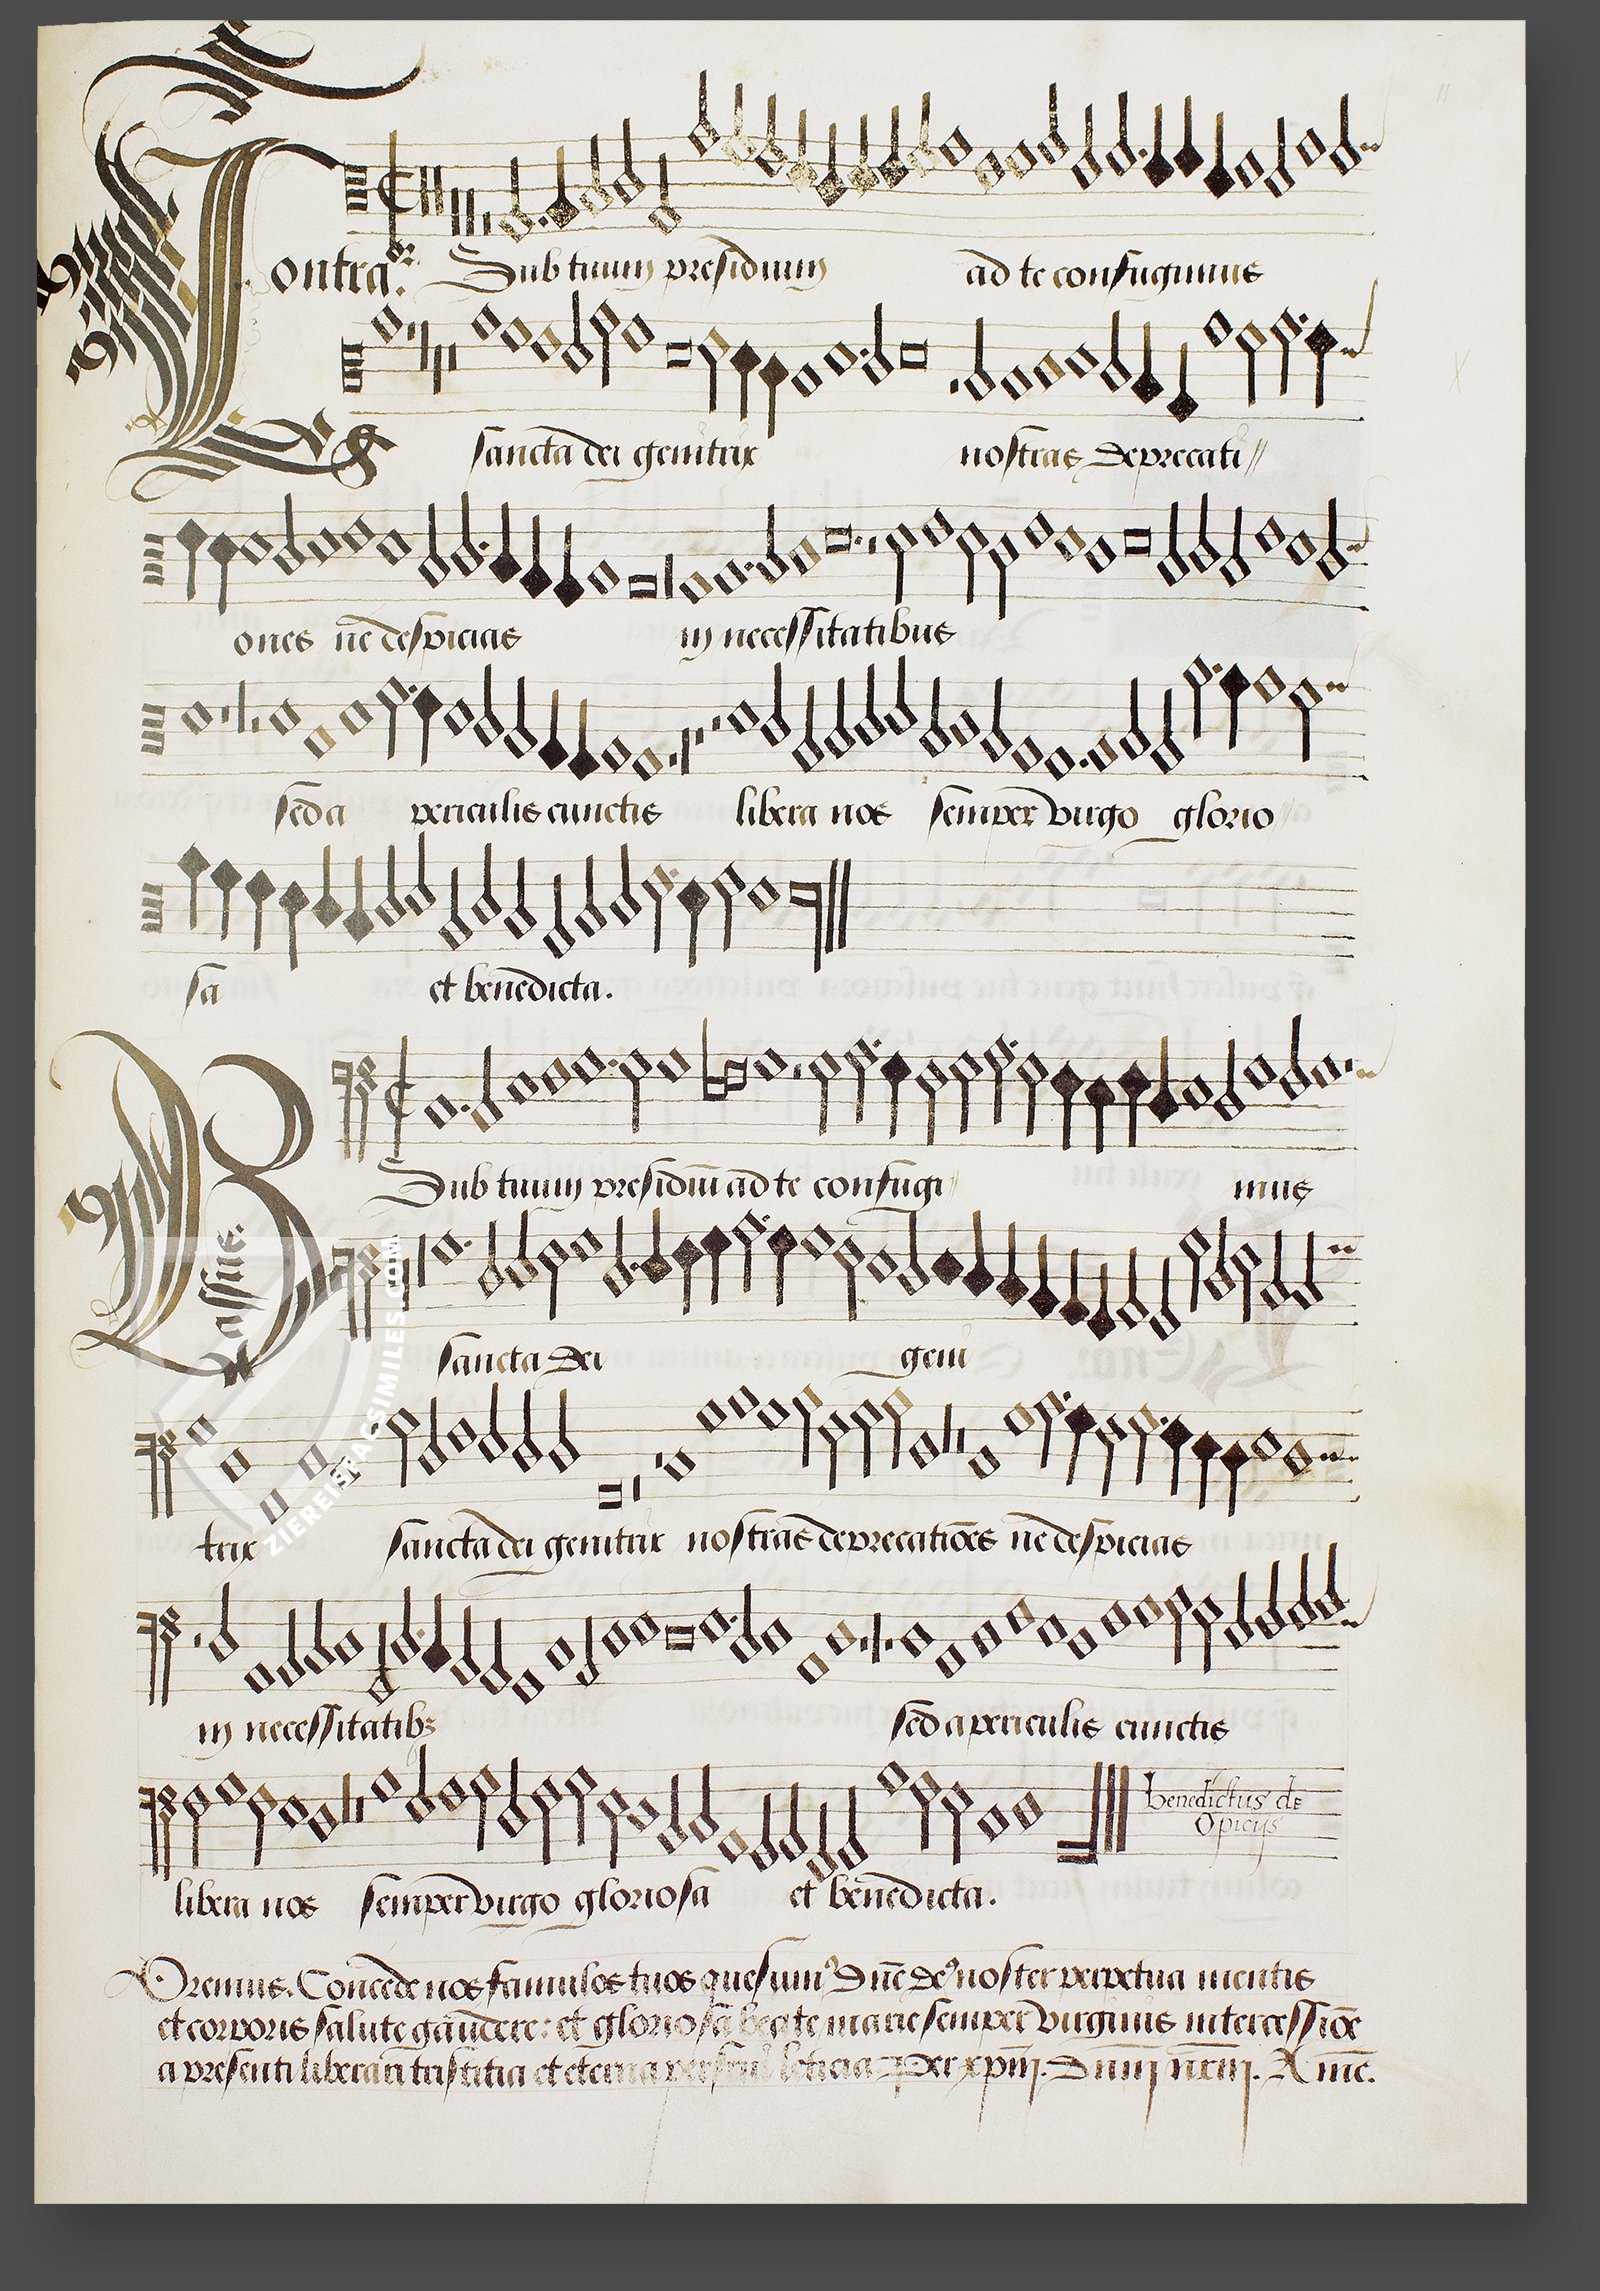 Contraor. Sub tuum presidium ad te confugimus
sancta dei genitrix nostras deprecati//
ones ne despicias in necessitatibus
sed a periculis cunctis libera nos semper virgo glorio
sa et benedicta.
Bassus. Sub tuum presidiū ad te confugi mus
sancta dei geni
trix sancta dei genitrix nostras deprecatiōes ne despicias
in necessitatibꝫ sed a periculis cunctis
benedictus de
Opicijs
libera nos semper virgo gloriosa et benedicta.
Oremus. Concede nos famulos tuos quesumꝰ Dñe deꝰ noster perpetua mentis
et corporis salute gaudere: et gloriosa beate marie semper virginis intercessiōe
a presenti liberari tristitia et eterna perfrui leticia Per xpm̄. Dnm̄ nr̄m. Amē.
ZIEREIS FACSIMILES.COM